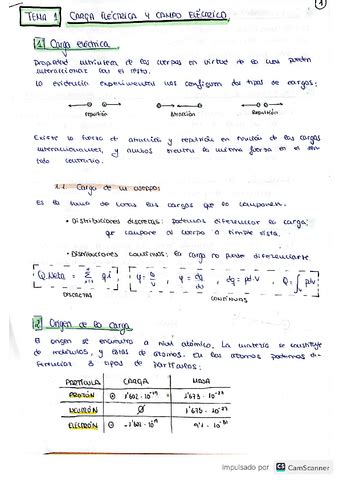 1
TEMA 1 CARGA ELÉCTRICA Y CAMPO ELÉCTRICO
1 Carga eléctrica
Propiedad intrínseca de los cuerpos en virtud de la cual pueden
interaccionar con el resto.
La evidencia experimental nos configura dos tipos de cargas:
repulsión atracción Repulsión
Existe la fuerza de atracción y repulsión en función de las cargas
interaccionantes, y ambos la misma fuerza en el sen-
tido contrario.
1.1. Carga de un cuerpo
Es la suma de todas las cargas que lo componen.
• Distribuciones discretas: podemos diferenciar la carga
que compone al cuerpo a simple vista.
• Distribuciones continuas: la carga no puede diferenciarse.
Q Neta = Σ qi
ρ = Q/V , ρ = dq/dV , dq = ρdV , Q = ∫ ρdv
DISCRETAS CONTINUAS
2 Origen de la carga
El origen se encuentra a nivel atómico. La materia se constituye
de moléculas, y estas de átomos. En los átomos podemos di-
ferenciar 3 tipos de partículas:
PARTÍCULA CARGA MASA
PROTÓN ⊕ 1'602 · 10⁻¹⁹ 1'673 · 10⁻²⁷
NEUTRÓN ∅ 1'675 · 10⁻²⁷
ELECTRÓN ⊖ -1'602 · 10⁻¹⁹ 9'1 · 10⁻³¹
Impulsado por CS CamScanner